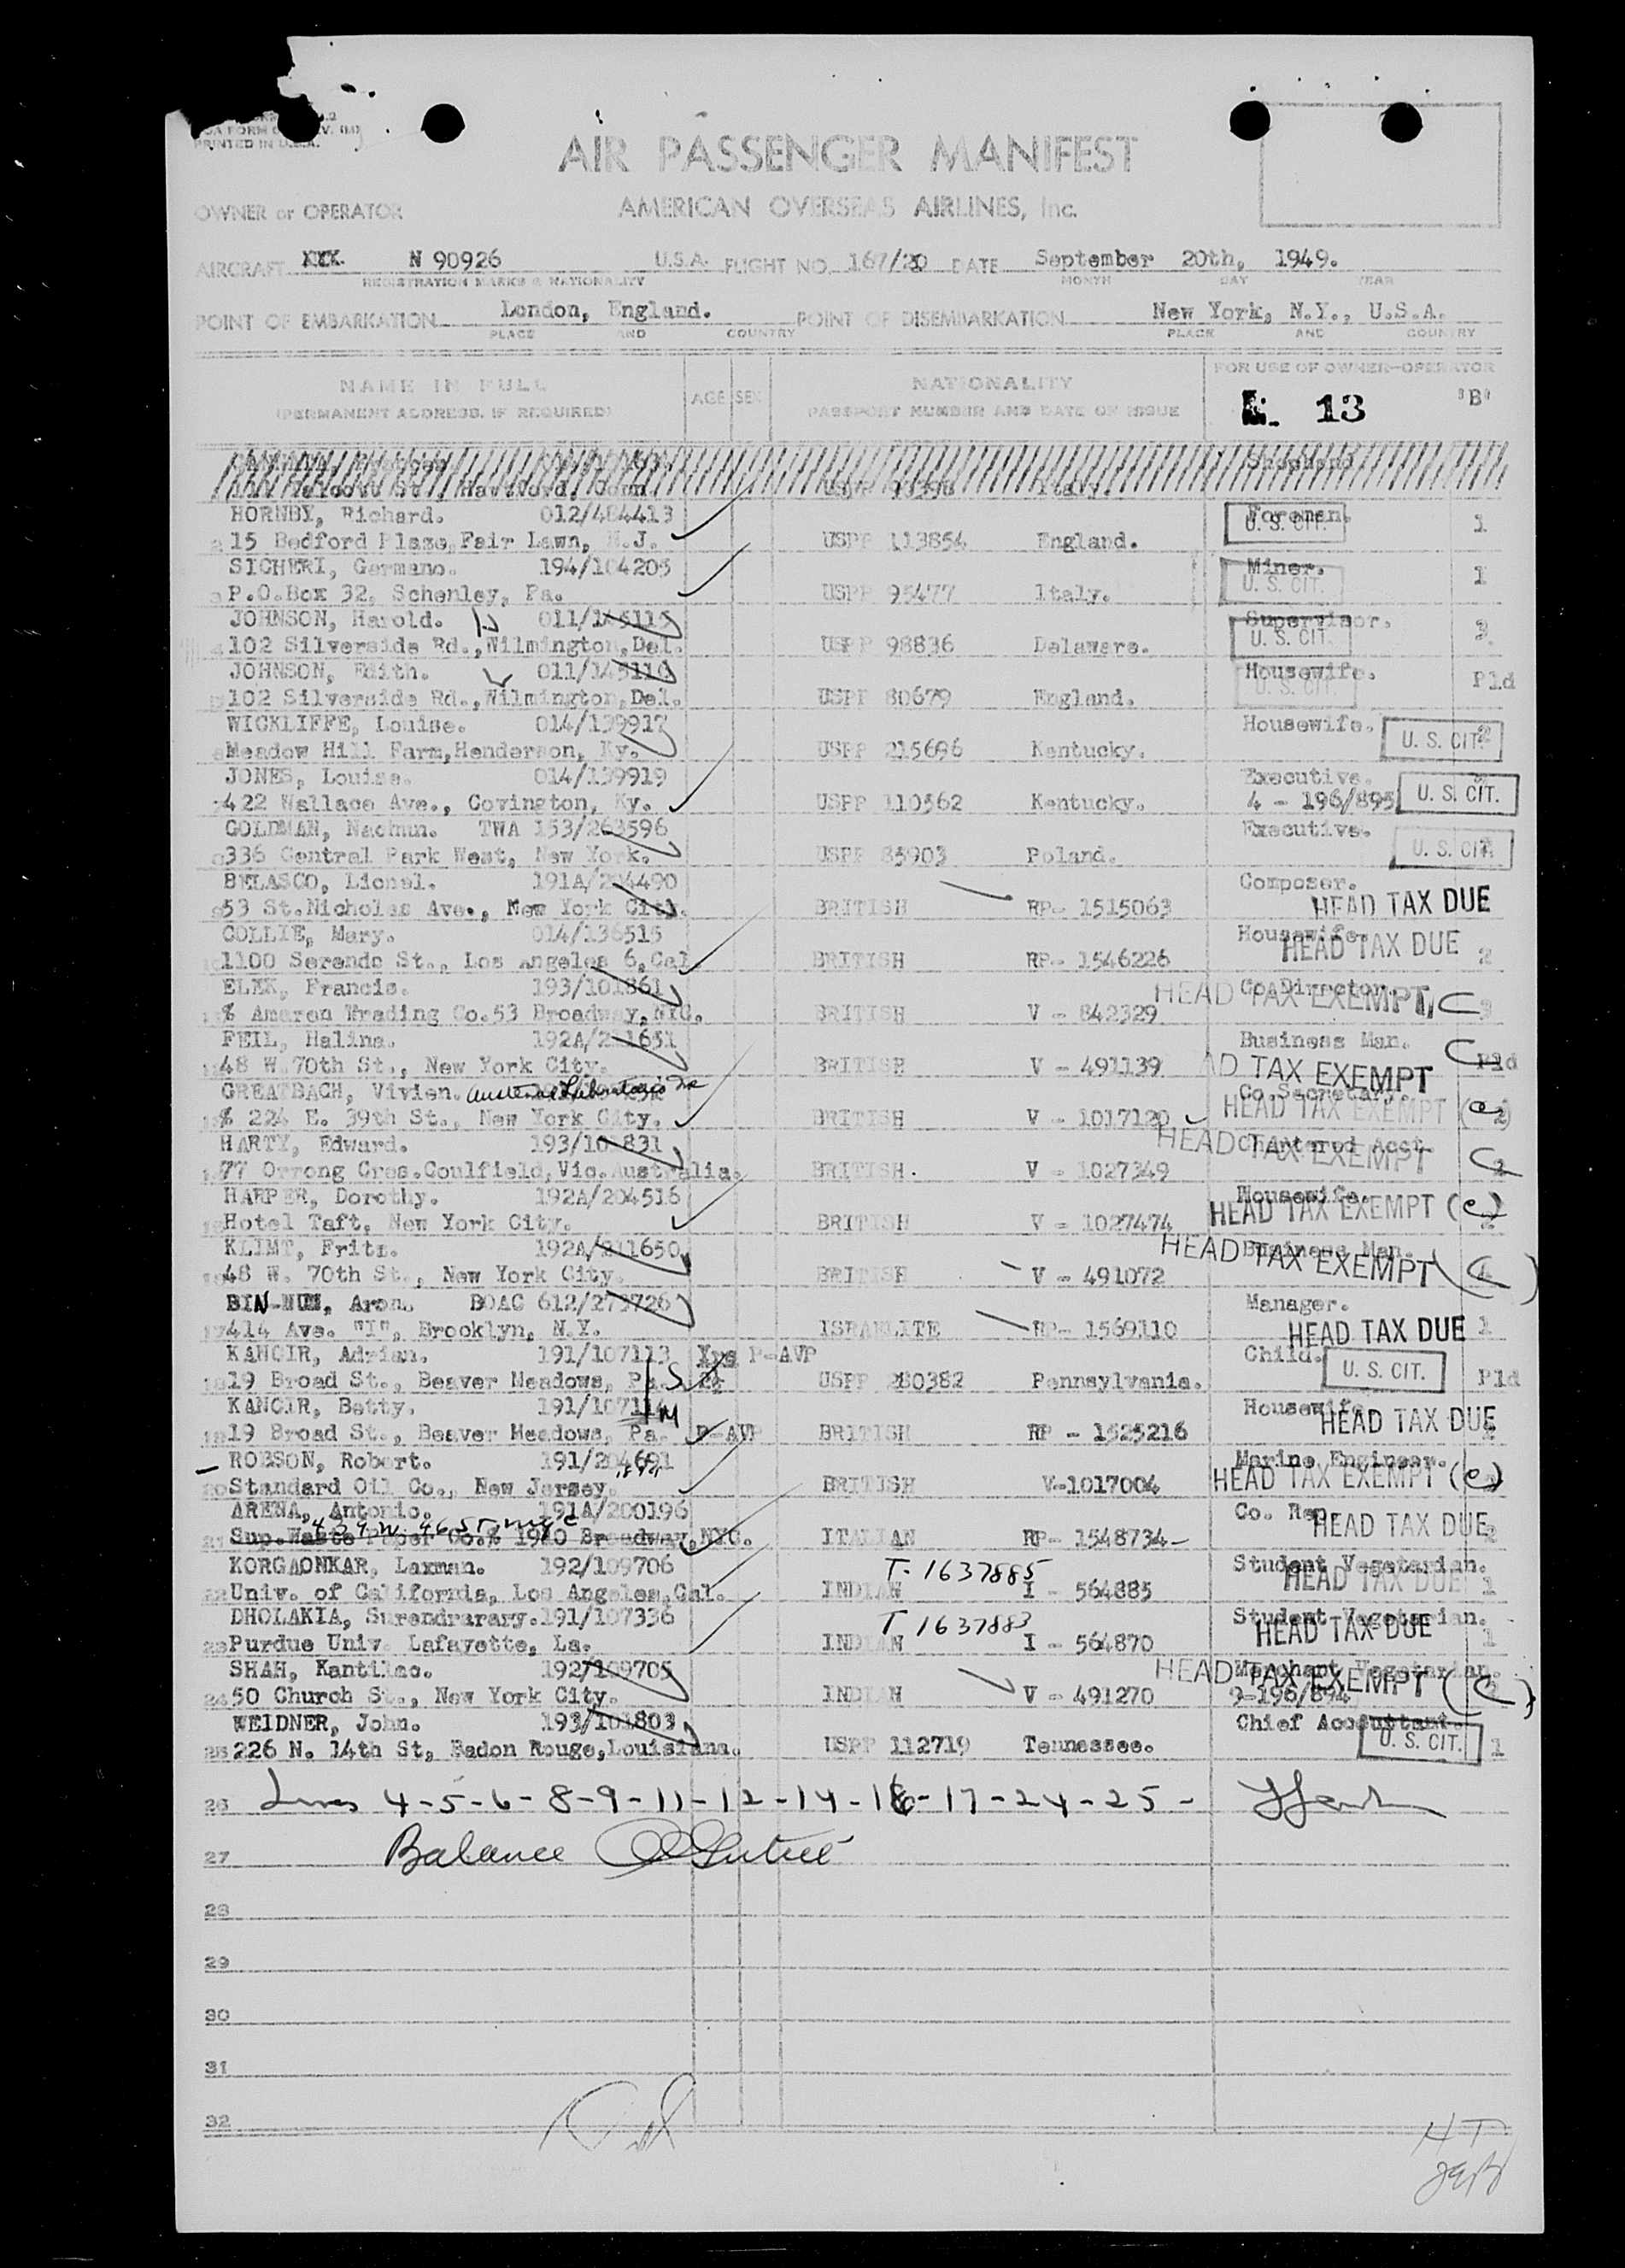 PRINTED IN U.S.A.
AIR PASSENGER MANIFEST
OWNER or OPERATOR AMERICAN OVERSEAS AIRLINES, Inc.
AIRCRAFT XXX N 90926 U.S.A. FLIGHT NO. 167/20 DATE September 20th, 1949.
REGISTRATION MARKS & NATIONALITY MONTH DAY YEAR
POINT OF EMBARKATION London, England. POINT OF DISEMBARKATION New York, N.Y., U.S.A.
PLACE AND COUNTRY PLACE AND COUNTRY
NAME IN FULL AGE SEX NATIONALITY FOR USE OF OWNER-OPERATOR
(PERMANENT ADDRESS, IF REQUIRED) PASSPORT NUMBER AND DATE OF ISSUE 13 "B"
HORNBY, Richard. 012/484413 Foreman.
2 15 Bedford Plase, Fair Lawn, N.J. USPP 113854 England. U. S. CIT. 1
SICHERI, Germano. 194/104205 Miner.
3 P.O.Box 32, Schenley, Pa. USPP 95477 Italy. U. S. CIT. 1
JOHNSON, Harold. 011/145115 Supervisor.
4 102 Silverside Rd., Wilmington, Del. USPP 98836 Delaware. U. S. CIT. 3
JOHNSON, Edith. 011/145116 Housewife.
5 102 Silverside Rd., Wilmington, Del. USPP 80679 England. U. S. CIT. Pld
WICKLIFFE, Louise. 014/139917 Housewife.
6 Meadow Hill Farm, Henderson, Ky. USPP 215696 Kentucky. U. S. CIT.
JONES, Louise. 014/139919 Executive.
7 422 Wallace Ave., Covington, Ky. USPP 110562 Kentucky. 4 - 196/895 U. S. CIT.
GOLDMAN, Nachun. TWA 153/263596 Executive.
8 336 Central Park West, New York. USPP 85903 Poland. U. S. CIT.
BELASCO, Lionel. 191A/204490 Composer.
9 53 St.Nicholas Ave., New York City. BRITISH RP- 1515063 HEAD TAX DUE
COLLIE, Mary. 014/136515 Housewife.
10 1100 Serando St., Los Angeles 6, Cal. BRITISH RP- 1546226 HEAD TAX DUE 2
ELEK, Francis. 193/101861 Co.Director.
11 % Ameron Trading Co.53 Broadway, NYC. BRITISH V - 842329 HEAD TAX EXEMPT C 3
FEIL, Halina. 192A/211651 Business Man.
12 48 W 70th St., New York City. BRITISH V - 491139 AD TAX EXEMPT C Pld
GREATBACH, Vivien. Co.Secretary.
13 % 224 E. 39th St., New York City. BRITISH V - 1017120 HEAD TAX EXEMPT (e)
HARTY, Edward. 193/10 831 Chartered Acct.
14 77 Orrong Cres.Coulfield, Vic.Australia. BRITISH. V - 1027349 HEAD TAX EXEMPT C
HARPER, Dorothy. 192A/204516 Housewife.
15 Hotel Taft, New York City. BRITISH V - 1027474 HEAD TAX EXEMPT (e)
KLIMT, Fritz. 192A/211650 Business Man.
16 48 W. 70th St., New York City. BRITISH V - 491072 HEAD TAX EXEMPT (C)
BIN-NUN, Aron. BOAC 612/273726 Manager.
17 414 Ave. "I", Brooklyn, N.Y. ISRAELITE RP- 1569110 HEAD TAX DUE 1
KANCIR, Adrian. 191/107113 P-AVP Child.
18 19 Broad St., Beaver Meadows, Pa. S USPP 280382 Pennsylvania. U. S. CIT. Pld
KANCIR, Betty. 191/107114 M Housewife
19 19 Broad St., Beaver Meadows, Pa. P-AVP BRITISH RP - 1525216 HEAD TAX DUE
ROBSON, Robert. 191/204691 Marine Engineer.
20 Standard Oil Co., New Jersey. BRITISH V-1017004 HEAD TAX EXEMPT (e)
ARENA, Antonio. 191A/200196 Co. Rep.
21 Sup.Waste Paper Co.% 1980 Broadway, NYC. ITALIAN RP- 1548734 HEAD TAX DUE 2
KORGAONKAR, Laxman. 192/109706 T-1637885 Student Vegetarian.
22 Univ. of California, Los Angeles, Cal. INDIAN I - 564885 HEAD TAX DUE 1
DHOLAKIA, Surendrarary. 191/107336 T 1637883 Student Vegetarian.
23 Purdue Univ. Lafayette, La. INDIAN I - 564870 HEAD TAX DUE 1
SHAH, Kantilac. 192/109705 Merchant Vegetarian.
24 50 Church St., New York City. INDIAN V - 491270 9-196/894 HEAD TAX EXEMPT (C)
WEIDNER, John. 193/101803 Chief Accountant.
25 226 N. 14th St, Badon Rouge, Louisiana. USPP 112719 Tennessee. U. S. CIT. 1
26 Lines 4-5-6-8-9-11-12-14-16-17-24-25-
27 Balance
28
29
30
31
32
HT